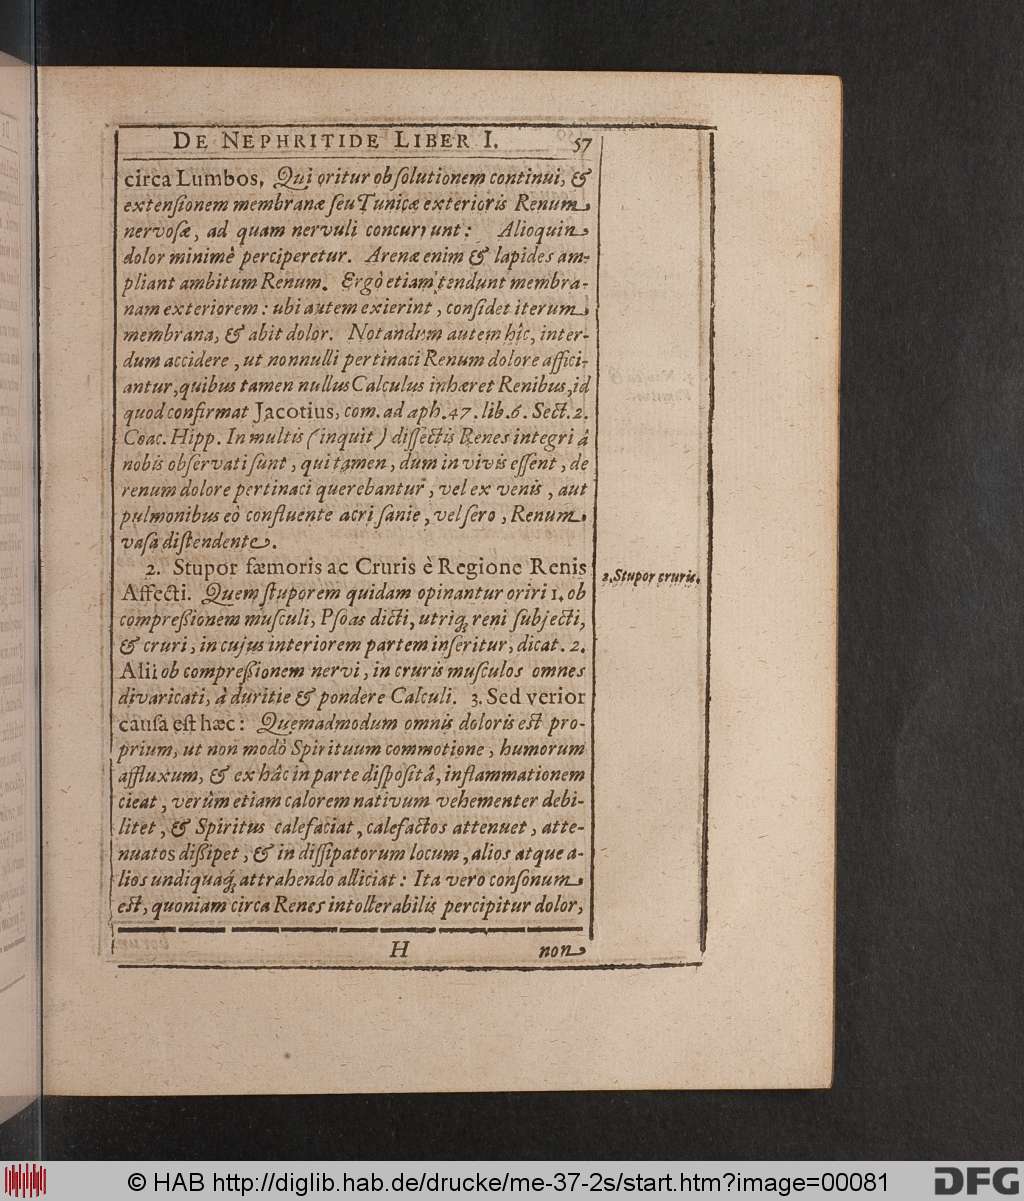 DE NEPHRITIDE LIBER I. 57
circa Lumbos. Qui oritur ob solutionem continui, &
extensionem membranæ seu Tunicæ exterioris Renum
nervosæ, ad quam nervuli concurrunt: Alioquin
dolor minimè perciperetur. Arenæ enim & lapides am-
pliant ambitum Renum. Ergò etiam tendunt membra-
nam exteriorem: ubi autem exierint, consider iterum
membrana, & abit dolor. Notandum autem hîc, inter-
dum accidere, ut nonnulli pertinaci Renum dolore affici-
antur, quibus tamen nullus Calculus inhæret Renibus, id
quod confirmat Jacotius, com. ad aph. 47. lib. 6. Sect. 2.
Coac. Hipp. In multis (inquit) dissectis Renes integri â
nobis observati sunt, qui tamen, dum in vivis essent, de
renum dolore pertinaci querebantur, vel ex venis, aut
pulmonibus eò confluente acri sanie, vel sero, Renum
vasa distendente.
2. Stupor fæmoris ac Cruris è Regione Renis
Affecti. Quem stuporem quidam opinantur oriri 1. ob
compreßionem musculi, Psoas dicti, utriq; reni subjecti,
& cruri, in cujus interiorem partem inseritur, dicat. 2.
Alii ob compreßionem nervi, in cruris musculos omnes
divaricati, à duritie & pondere Calculi. 3. Sed verior
causa est hæc: Quemadmodum omnis doloris est pro-
prium, ut non modò Spirituum commotione, humorum
affluxum, & ex hâc in parte dispositâ, inflammationem
cieat, verùm etiam calorem nativum vehementer debi-
litet, & Spiritus calefaciat, calefactos attenuet, atte-
nuatos dißipet, & in dissipatorum locum, alios atque a-
lios undiquaq; attrahendo alliciat: Ita vero consonum
est, quoniam circa Renes intollerabilis percipitur dolor,
H non
2. Stupor cruris.
© HAB http://diglib.hab.de/drucke/me-37-2s/start.htm?image=00081
DFG